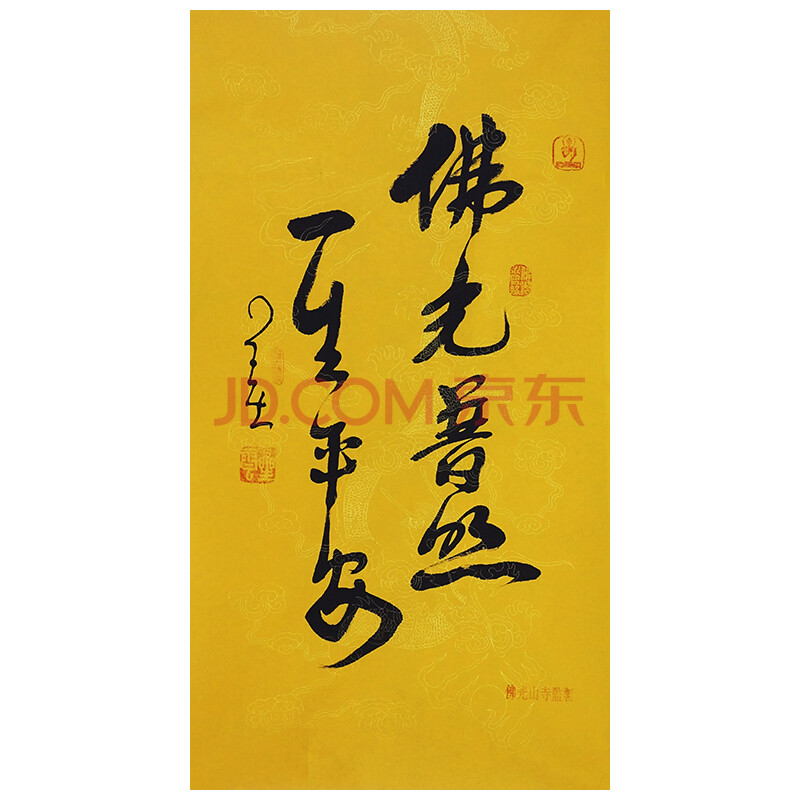 佛光普照
一生平安
佛光山寺監製
JD.COM 京东